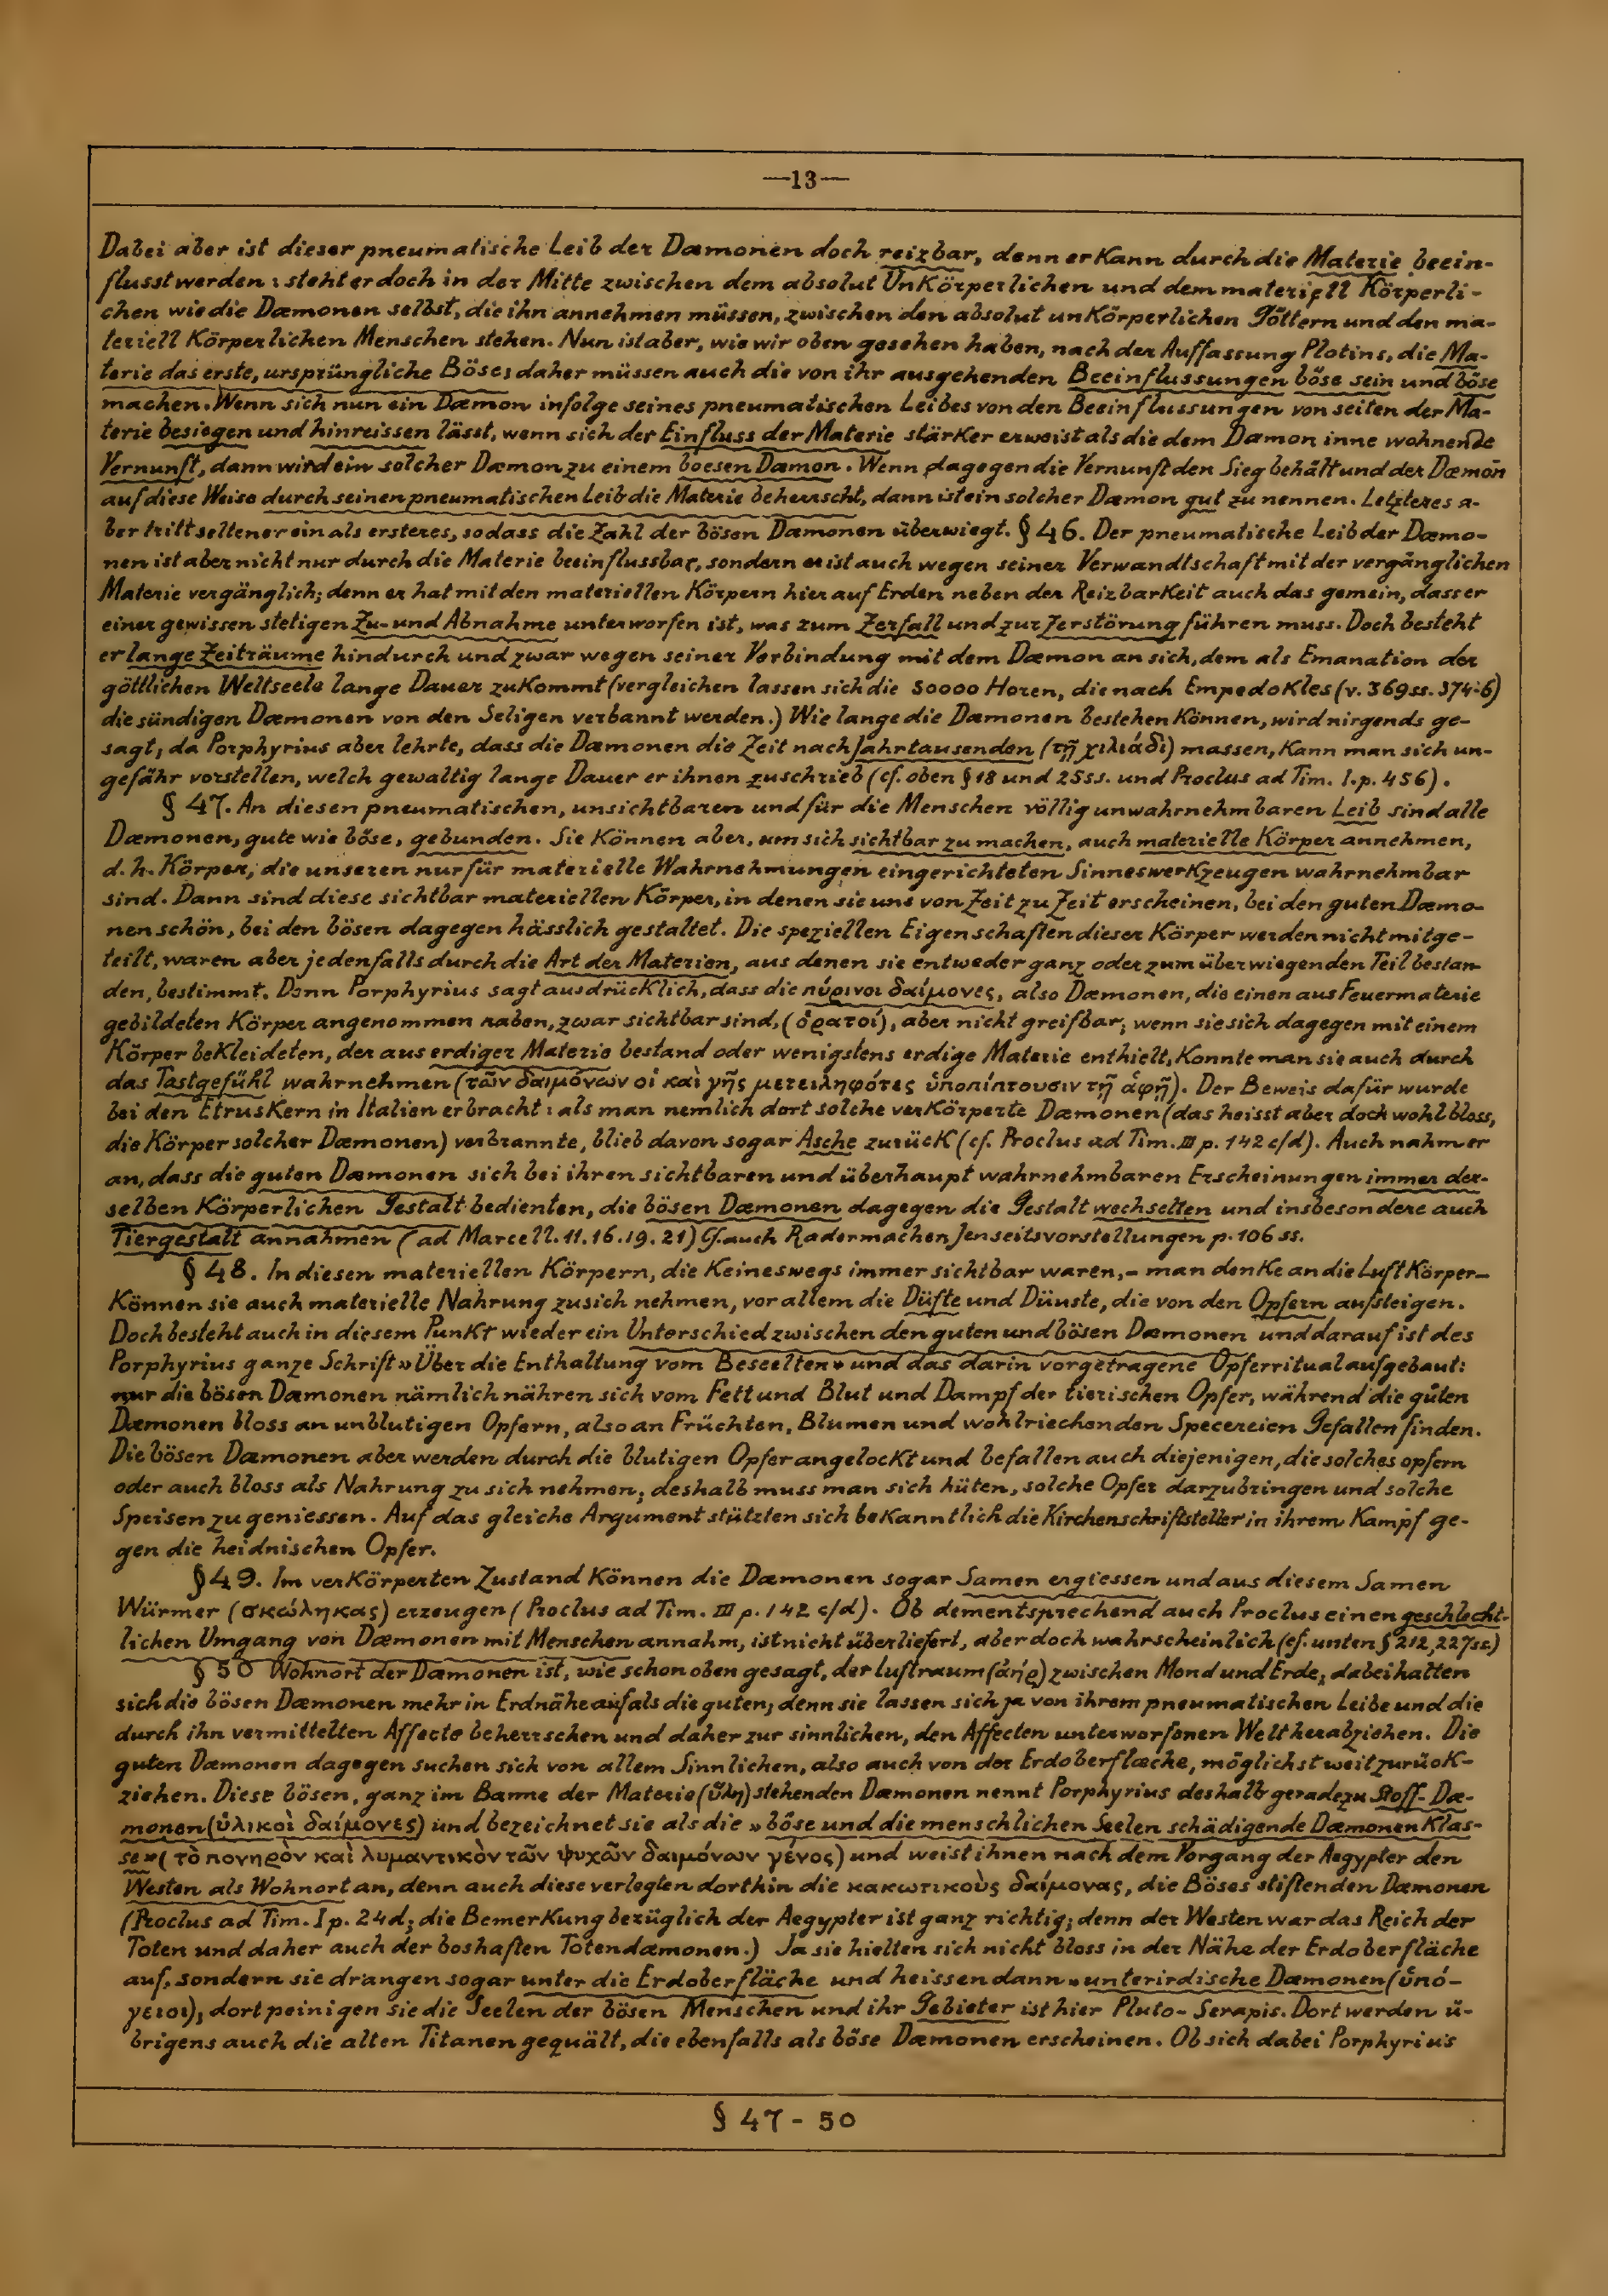 —13—
Dabei aber ist dieser pneumatische Leib der Dæmonen doch reizbar, denn er kann durch die Materie beein-
flusst werden: steht er doch in der Mitte zwischen dem absolut Unkörperlichen und dem materiell Körperli-
chen wie die Dæmonen selbst, die ihn annehmen müssen, zwischen den absolut unkörperlichen Göttern und den ma-
teriell körperlichen Menschen stehen. Nun ist aber, wie wir oben gesehen haben, nach der Auffassung Plotins, die Ma-
terie das erste, ursprüngliche Böse; daher müssen auch die von ihr ausgehenden Beeinflussungen böse sein und böse
machen. Wenn sich nun ein Dæmon infolge seines pneumatischen Leibes von den Beeinflussungen von seiten der Ma-
terie besiegen und hinreissen lässt, wenn sich der Einfluss der Materie stärker erweist als die dem Dæmon inne wohnende
Vernunft, dann wird ein solcher Dæmon zu einem boesen Dæmon. Wenn dagegen die Vernunft den Sieg behält und der Dæmon
auf diese Weise durch seinen pneumatischen Leib die Materie beherrscht, dann ist ein solcher Dæmon gut zu nennen. Letzteres a-
ber tritt seltener ein als ersteres, sodass die Zahl der bösen Dæmonen überwiegt. § 46. Der pneumatische Leib der Dæmo-
nen ist aber nicht nur durch die Materie beeinflussbar, sondern er ist auch wegen seiner Verwandtschaft mit der vergänglichen
Materie vergänglich; denn er hat mit den materiellen Körpern hier auf Erden neben der Reizbarkeit auch das gemein, dass er
einer gewissen stetigen Zu- und Abnahme unterworfen ist, was zum Zerfall und zur Zerstörung führen muss. Doch besteht
er lange Zeiträume hindurch und zwar wegen seiner Verbindung mit dem Dæmon an sich, dem als Emanation der
göttlichen Weltseele lange Dauer zukommt (vergleichen lassen sich die 30000 Horen, die nach Empedokles (v. 369ss. 374-6)
die sündigen Dæmonen von den Seligen verbannt werden.) Wie lange die Dæmonen bestehen können, wird nirgends ge-
sagt; da Porphyrius aber lehrte, dass die Dæmonen die Zeit nach Jahrtausenden (τῇ χιλιάδι) massen, kann man sich un-
gefähr vorstellen, welch gewaltig lange Dauer er ihnen zuschrieb (cf. oben § 18 und 25ss. und Proclus ad Tim. I. p. 456).
§ 47. An diesen pneumatischen, unsichtbaren und für die Menschen völlig unwahrnehmbaren Leib sind alle
Dæmonen, gute wie böse, gebunden. Sie können aber, um sich sichtbar zu machen, auch materielle Körper annehmen,
d. h. Körper, die unseren nur für materielle Wahrnehmungen eingerichteten Sinneswerkzeugen wahrnehmbar
sind. Dann sind diese sichtbar materiellen Körper, in denen sie uns von Zeit zu Zeit erscheinen, bei den guten Dæmo-
nen schön, bei den bösen dagegen hässlich gestaltet. Die speziellen Eigenschaften dieser Körper werden nicht mitge-
teilt, waren aber jedenfalls durch die Art der Materien, aus denen sie entweder ganz oder zum überwiegenden Teil bestan-
den, bestimmt. Denn Porphyrius sagt ausdrücklich, dass die πύρινοι δαίμονες, also Dæmonen, die einen aus Feuermaterie
gebildeten Körper angenommen haben, zwar sichtbar sind, (ὁρατοί), aber nicht greifbar; wenn sie sich dagegen mit einem
Körper bekleideten, der aus erdiger Materie bestand oder wenigstens erdige Materie enthielt, konnte man sie auch durch
das Tastgefühl wahrnehmen (τῶν δαιμόνων οἱ καὶ γῆς μετειληφότες ὑποπίπτουσιν τῇ ἁφῇ). Der Beweis dafür wurde
bei den Etruskern in Italien erbracht: als man nemlich dort solche verkörperte Dæmonen (das heisst aber doch wohl bloss,
die Körper solcher Dæmonen) verbrannte, blieb davon sogar Asche zurück (cf. Proclus ad Tim. III p. 142 c/d). Auch nahm er
an, dass die guten Dæmonen sich bei ihren sichtbaren und überhaupt wahrnehmbaren Erscheinungen immer der-
selben körperlichen Gestalt bedienten, die bösen Dæmonen dagegen die Gestalt wechselten und insbesondere auch
Tiergestalt annahmen (ad Marcell. 11. 16. 19. 21) Cf. auch Radermachen Jenseitsvorstellungen p. 106 ss.
§ 48. In diesen materiellen Körpern, die keineswegs immer sichtbar waren, - man denke an die Luftkörper-
können sie auch materielle Nahrung zu sich nehmen, vor allem die Düfte und Dünste, die von den Opfern aufsteigen.
Doch besteht auch in diesem Punkt wieder ein Unterschied zwischen den guten und bösen Dæmonen und darauf ist des
Porphyrius ganze Schrift »Über die Enthaltung vom Beseelten« und das darin vorgetragene Opferritual aufgebaut:
nur die bösen Dæmonen nämlich nähren sich vom Fett und Blut und Dampf der tierischen Opfer, während die guten
Dæmonen bloss an unblutigen Opfern, also an Früchten, Blumen und wohlriechenden Specereien Gefallen finden.
Die bösen Dæmonen aber werden durch die blutigen Opfer angelockt und befallen auch diejenigen, die solches opfern
oder auch bloss als Nahrung zu sich nehmen; deshalb muss man sich hüten, solche Opfer darzubringen und solche
Speisen zu geniessen. Auf das gleiche Argument stützten sich bekanntlich die Kirchenschriftsteller in ihrem Kampf ge-
gen die heidnischen Opfer.
§ 49. Im verkörperten Zustand können die Dæmonen sogar Samen ergiessen und aus diesem Samen
Würmer (σκώληκας) erzeugen (Proclus ad Tim. III p. 142 c/d). Ob dementsprechend auch Proclus einen geschlecht-
lichen Umgang von Dæmonen mit Menschen annahm, ist nicht überliefert, aber doch wahrscheinlich (cf. unten § 212, 227ss.)
§ 50 Wohnort der Dæmonen ist, wie schon oben gesagt, der Luftraum (ἀήρ) zwischen Mond und Erde; dabei halten
sich die bösen Dæmonen mehr in Erdnähe auf als die guten; denn sie lassen sich ja von ihrem pneumatischen Leibe und die
durch ihn vermittelten Affecte beherrschen und daher zur sinnlichen, den Affecten unterworfenen Welt herabziehen. Die
guten Dæmonen dagegen suchen sich von allem Sinnlichen, also auch von der Erdoberflæche, möglichst weit zurück-
ziehen. Diese bösen, ganz im Banne der Materie (ὕλη) stehenden Dæmonen nennt Porphyrius deshalb geradezu Stoff-Dæ-
monen (ὑλικοὶ δαίμονες) und bezeichnet sie als die »böse und die menschlichen Seelen schädigende Dæmonen Klas-
se« (τὸ πονηρὸν καὶ λυμαντικὸν τῶν ψυχῶν δαιμόνων γένος) und weist ihnen nach dem Vorgang der Aegypter den
Westen als Wohnort an, denn auch diese verlegten dorthin die κακωτικοὺς δαίμονας, die Böses stiftenden Dæmonen
(Proclus ad Tim. I p. 24d; die Bemerkung bezüglich der Aegypter ist ganz richtig; denn der Westen war das Reich der
Toten und daher auch der boshaften Totendæmonen.) Ja sie hielten sich nicht bloss in der Nähe der Erdoberfläche
auf, sondern sie drangen sogar unter die Erdoberfläche und heissen dann »unterirdische Dæmonen (ὑπό-
γειοι); dort peinigen sie die Seelen der bösen Menschen und ihr Gebieter ist hier Pluto-Serapis. Dort werden ü-
brigens auch die alten Titanen gequält, die ebenfalls als böse Dæmonen erscheinen. Ob sich dabei Porphyrius
§ 47 - 50